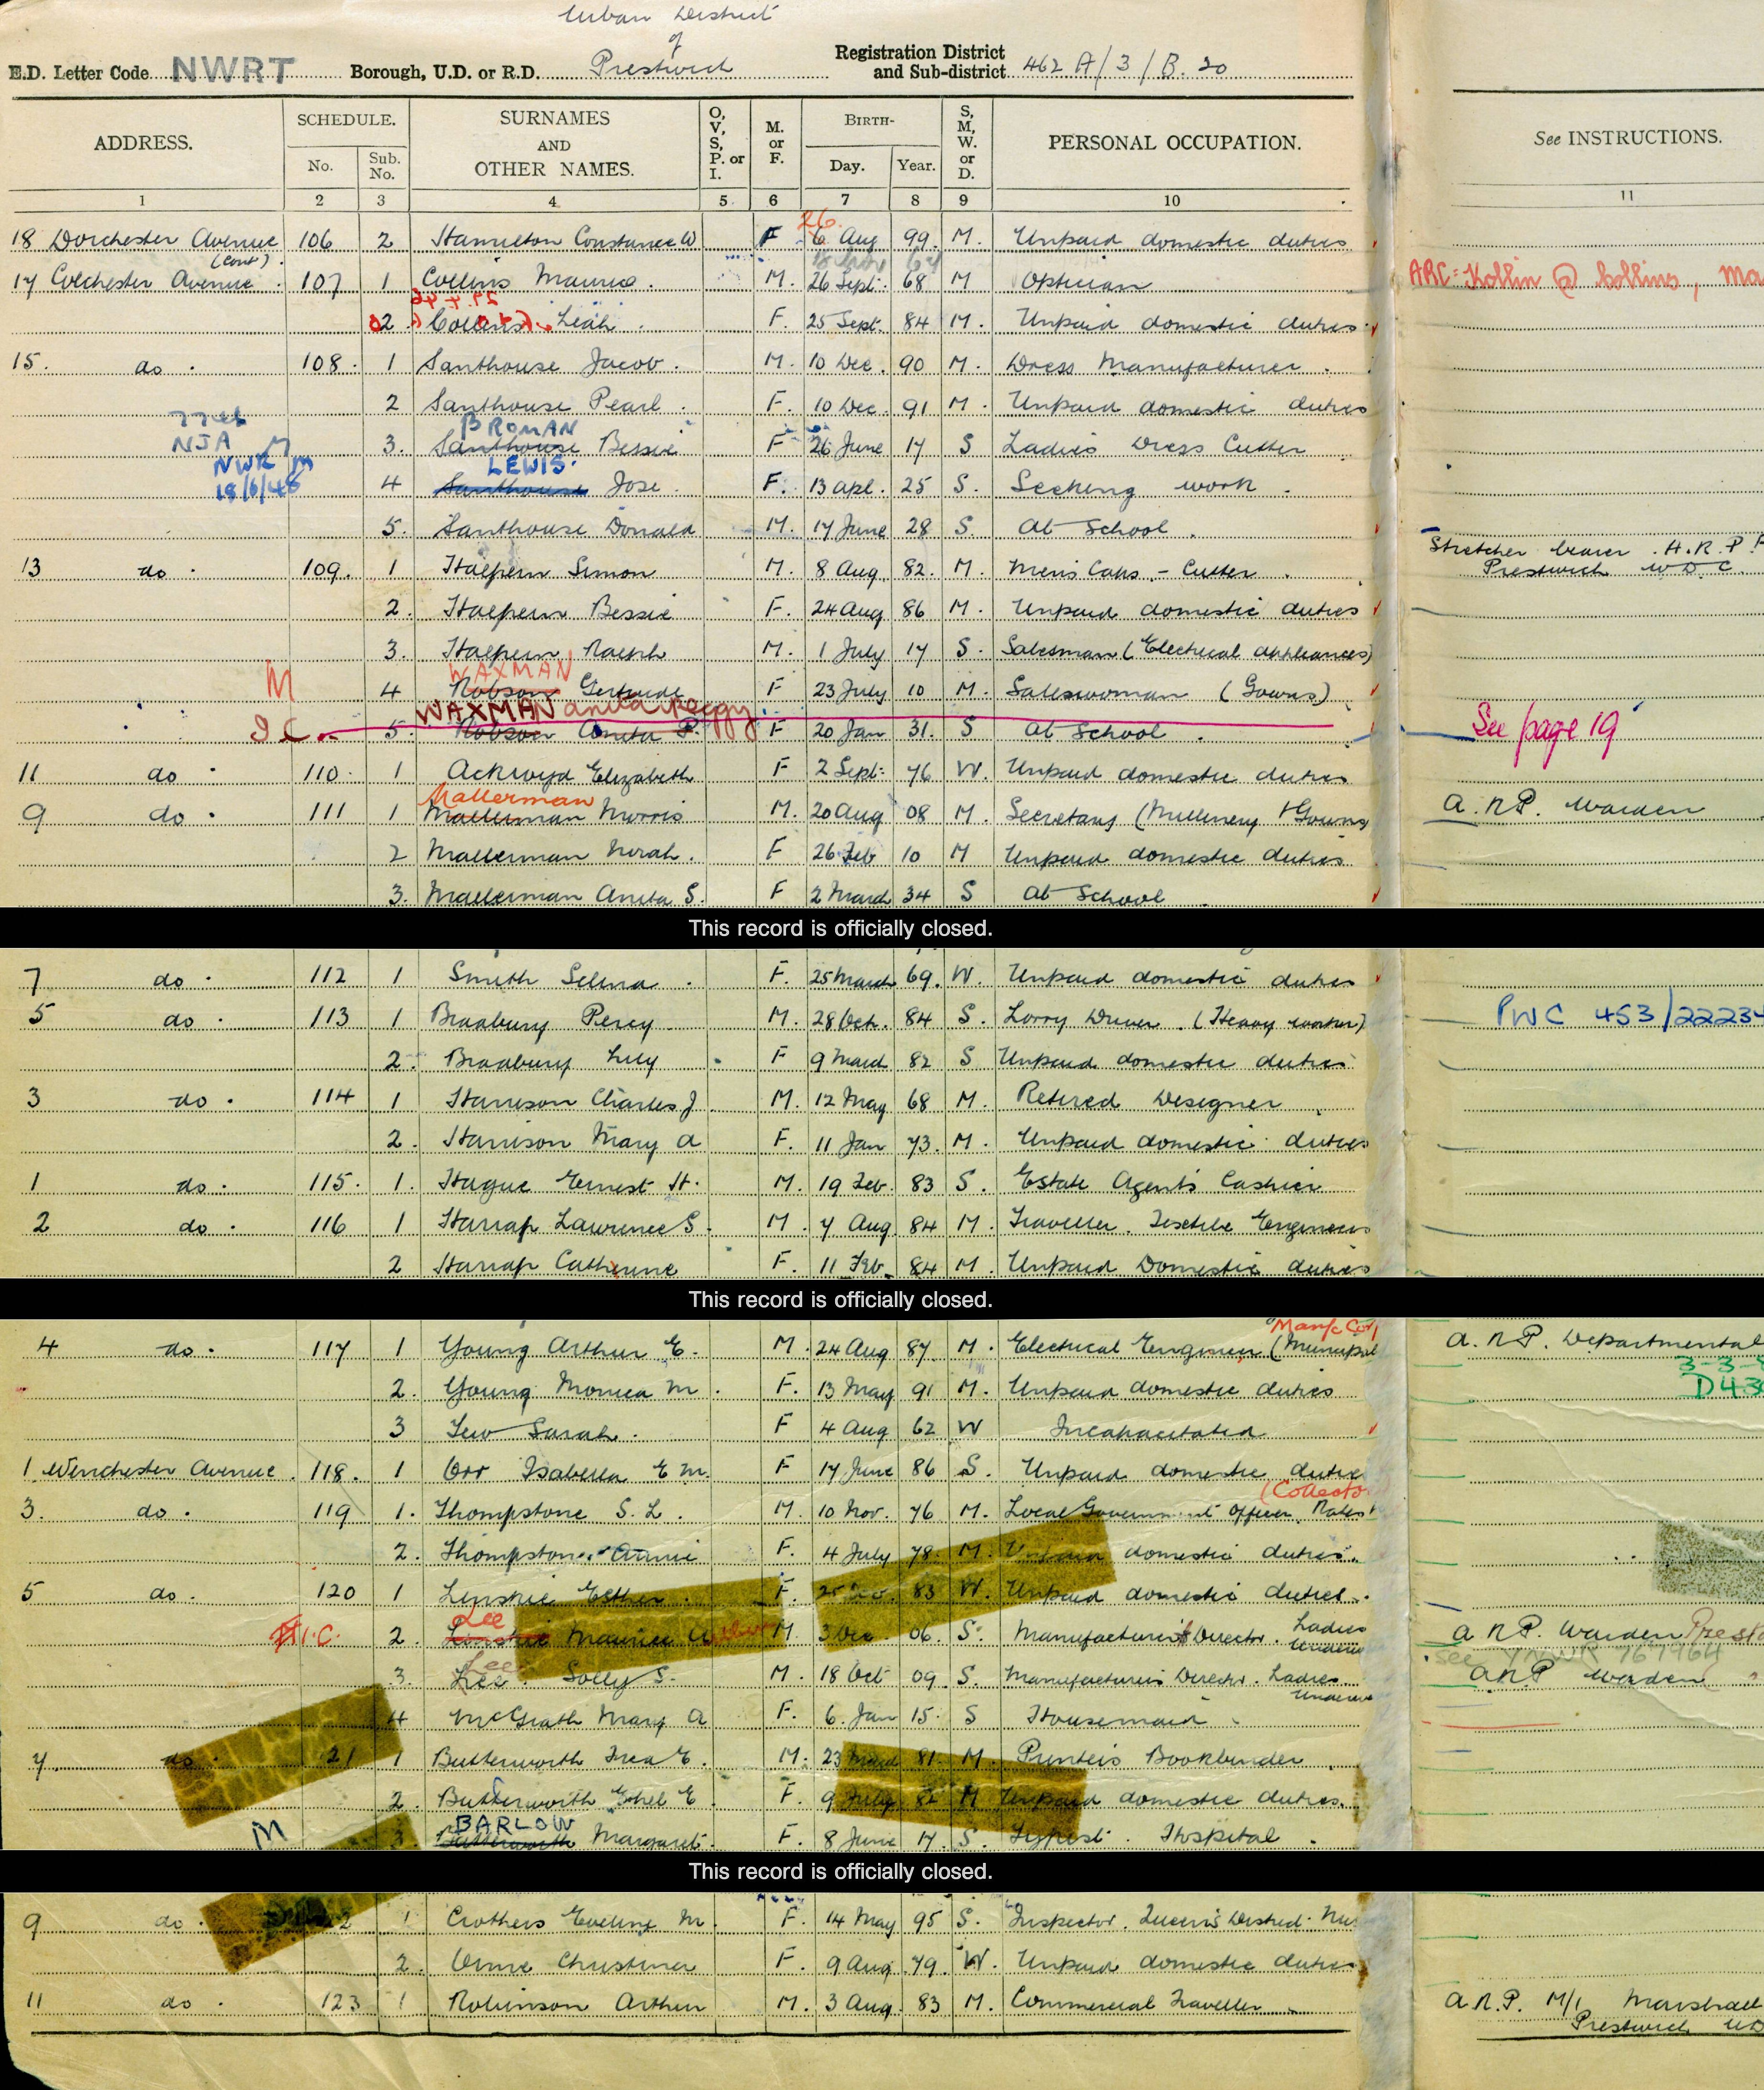 Urban District
of
E.D. Letter Code NWRT Borough, U.D. or R.D. Prestwich Registration District and Sub-district 462 A/3/B. 20
ADDRESS. SCHEDULE. No. Sub. No. SURNAMES AND OTHER NAMES. O, V, S, P. or I. M. or F. BIRTH- Day. Year. S, M, W. or D. PERSONAL OCCUPATION. See INSTRUCTIONS.
1 2 3 4 5 6 7 8 9 10 11
26
18 Dorchester Avenue (cont) 106 2 Hamilton Constance W F 6 Aug 99 M. Unpaid domestic duties
17 Colchester Avenue 107 1 Collins Maurice M. 26 Sept 68 M Optician ARC= Kollin @ Collins, Ma
2 Collins Leah F. 25 Sept. 84 M. Unpaid domestic duties
15. do 108. 1 Santhouse Jacob M. 10 Dec. 90 M. Dress Manufacturer
2 Santhouse Pearl F. 10 Dec 91 M. Unpaid domestic duties
BROMAN
NJA 3. Santhouse Bessie F 26 June 17 S Ladies Dress Cutter
NWR LEWIS
18/6/48 4 Santhouse Jose F. 13 Apl. 25 S. Seeking work
5. Santhouse Donald M. 17 June 28 S. At School
Stretcher bearer A.R.P.
13 do 109. 1 Halpern Simon M. 8 Aug 82. M. Mens Caps - Cutter Prestwich U.D.C.
2. Halpern Bessie F. 24 Aug 86 M. Unpaid domestic duties
3. Halpern Ralph M. 1 July 17 S. Salesman (Electrical appliances)
WAXMAN
M 4 Robson Gertrude F 23 July 10 M. Saleswoman (Gowns)
WAXMAN Anita Peggy
5 Robson Anita P. F 20 Jan 31. S At School See page 19
11 do 110. 1 Ackroyd Elizabeth F 2 Sept 76 W. Unpaid domestic duties
Mallerman
9 do 111 1 Mallerman Morris M. 20 Aug 08 M. Secretary (Millinery & Gowns A.R.P. Warden
2 Mallerman Norah F 26 Feb 10 M Unpaid domestic duties
3. Mallerman Anita S. F 2 March 34 S At School
This record is officially closed.
7 do 112 1 Smith Selina F. 25 March 69. W. Unpaid domestic duties
5 do 113 1 Bradbury Percy M. 28 Oct. 84 S. Lorry Driver (Heavy worker) PWC 453/22234
2. Bradbury Lily F 9 March 82 S Unpaid domestic duties
3 do 114 1 Harrison Charles J. M. 12 May 68 M. Retired Designer
2. Harrison Mary A F. 11 Jan 73. M. Unpaid domestic duties
1 do 115. 1. Hague Ernest H. M. 19 Feb. 83 S. Estate Agents Cashier
2 do 116 1 Harrap Lawrence S. M. 7 Aug 84 M. Traveller. Textile Engineers
2 Harrap Catherine F. 11 Feb. 84 M. Unpaid Domestic duties
This record is officially closed.
4 do 117 1 Young Arthur E. M. 24 Aug 87. M. Electrical Engineer (Municipal A.R.P. Departmental
2. Young Monica M. F. 13 May 91 M. Unpaid domestic duties
3 Tew Sarah F 4 Aug 62 W Incapacitated
1 Winchester Avenue 118. 1 Orr Isabella E M. F 17 June 86 S. Unpaid domestic duties
3. do 119 1. Thompstone S. L. M. 10 Nov. 76 M. Local Government Officer, Rates (Collector
2. Thompstone Annie F. 4 July 78. M. Unpaid domestic duties.
5 do 120 1 Linskie Esther F. 83 W. Unpaid domestic duties.
Lee
2. Maurice M. 3 Dec. 06. S. Manufacturer's Director. Ladies A R.P. Warden
Lee
3. Lee Solly S. M. 18 Oct 09 S. Manufacturer's Director. Ladies A.R.P Warden
4 McGrath Mary A F. 6. Jan 15. S Housemaid
7 do 121 1 Butterworth Ira E. M. 23 March 81. M. Printer's Bookbinder
2. Butterworth Ethel E F. 9 July 82 M Unpaid domestic duties.
BARLOW
M 3. Butterworth Margaret F. 8 June 17. S. Typist. Hospital
This record is officially closed.
9 do 1 Crothers Eveline M. F. 14 May 95 S. Inspector. Queen's District Nu
2. Orme Christina F. 9 Aug 79. W. Unpaid domestic duties
11 do 123 1 Robinson Arthur M. 3 Aug 83 M. Commercial Traveller A.R.P. M/c Marshall
Prestwich UD